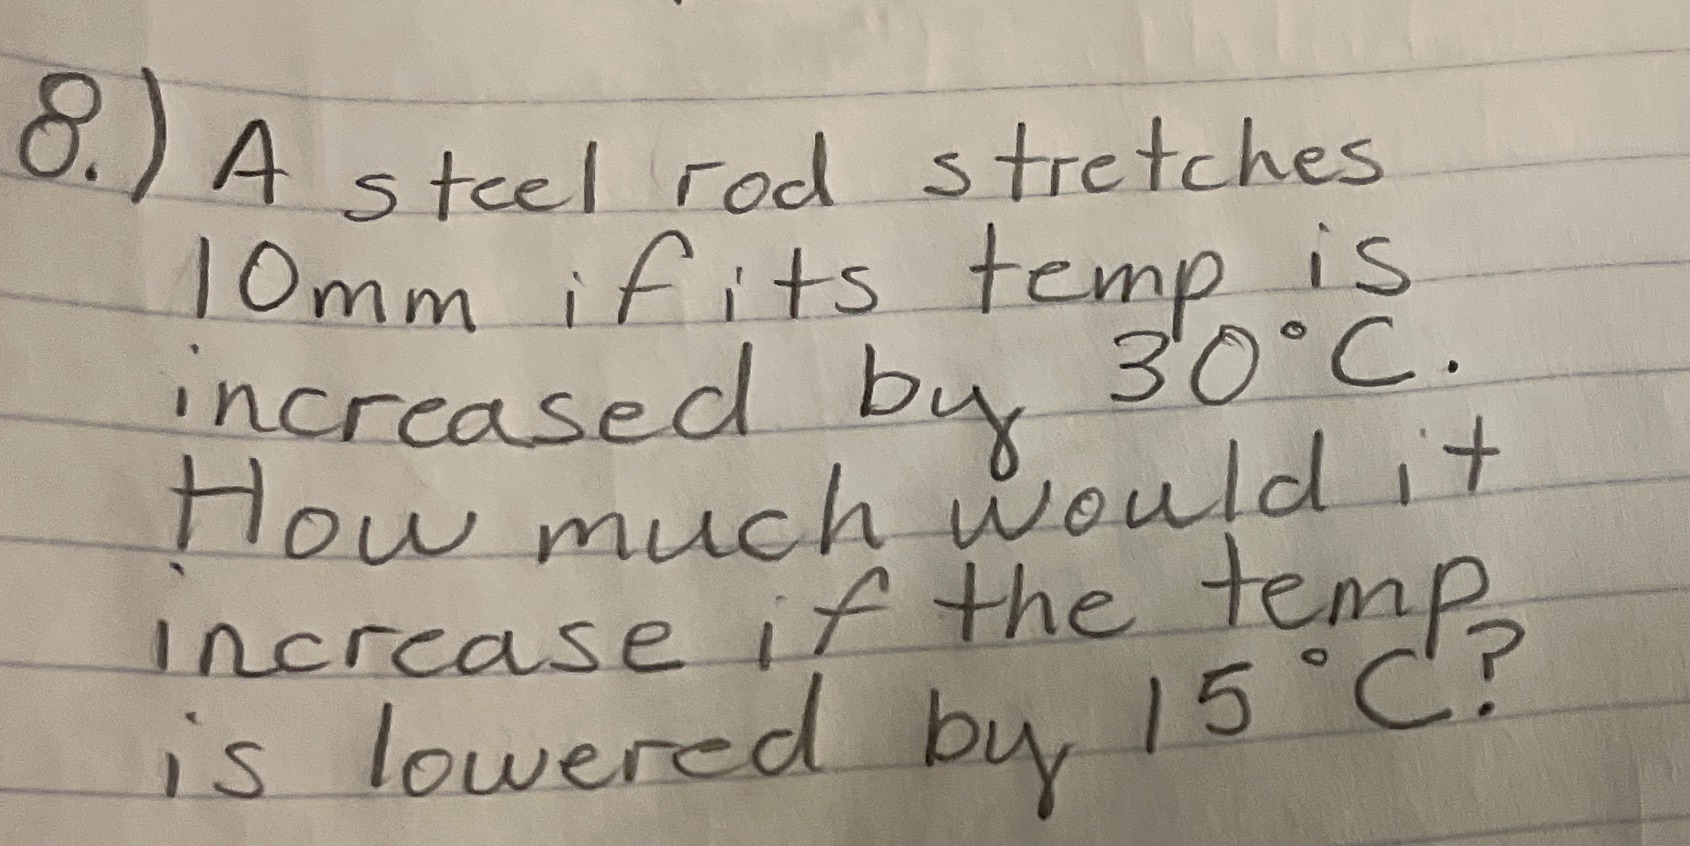 8.) A steel rod stretches
10mm if its temp is
increased by 30°C.
How much would it
increase if the temp
is lowered by 15°C?